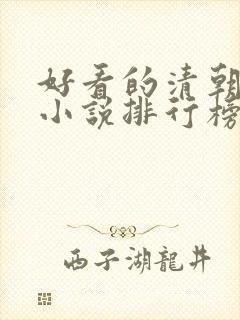 好看的清朝
小说排行榜
西子湖龍井